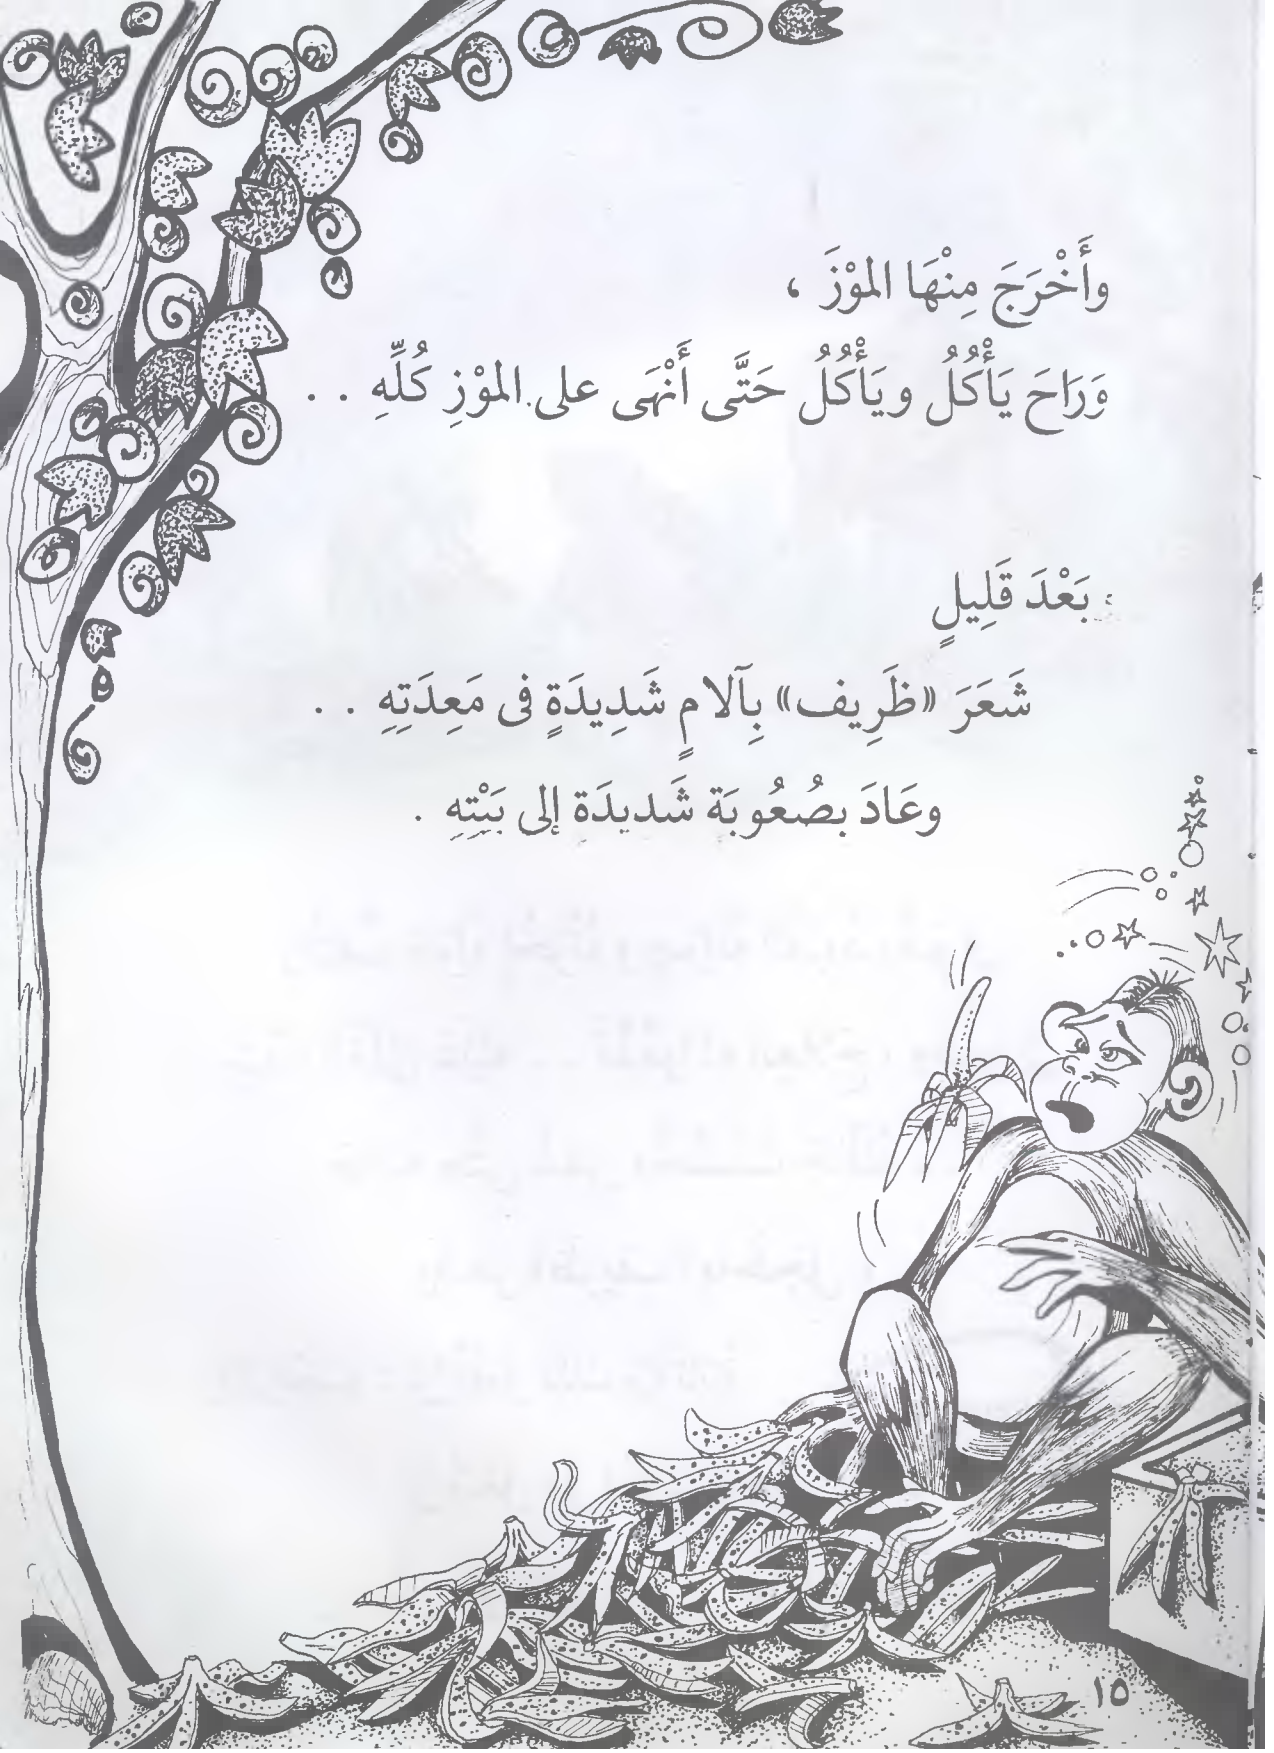 وأَخْرَجَ مِنْهَا الموْزَ ،
وَرَاحَ يَأْكُلُ ويَأْكُلُ حَتَّى أَنْهَى على الموْزِ كُلِّهِ . .
بَعْدَ قَلِيلٍ
شَعَرَ «ظَرِيف» بِآلامٍ شَدِيدَةٍ فى مَعِدَتِهِ . .
وعَادَ بصُعُوبَة شَديدَة إلى بَيْتِهِ .
١٥